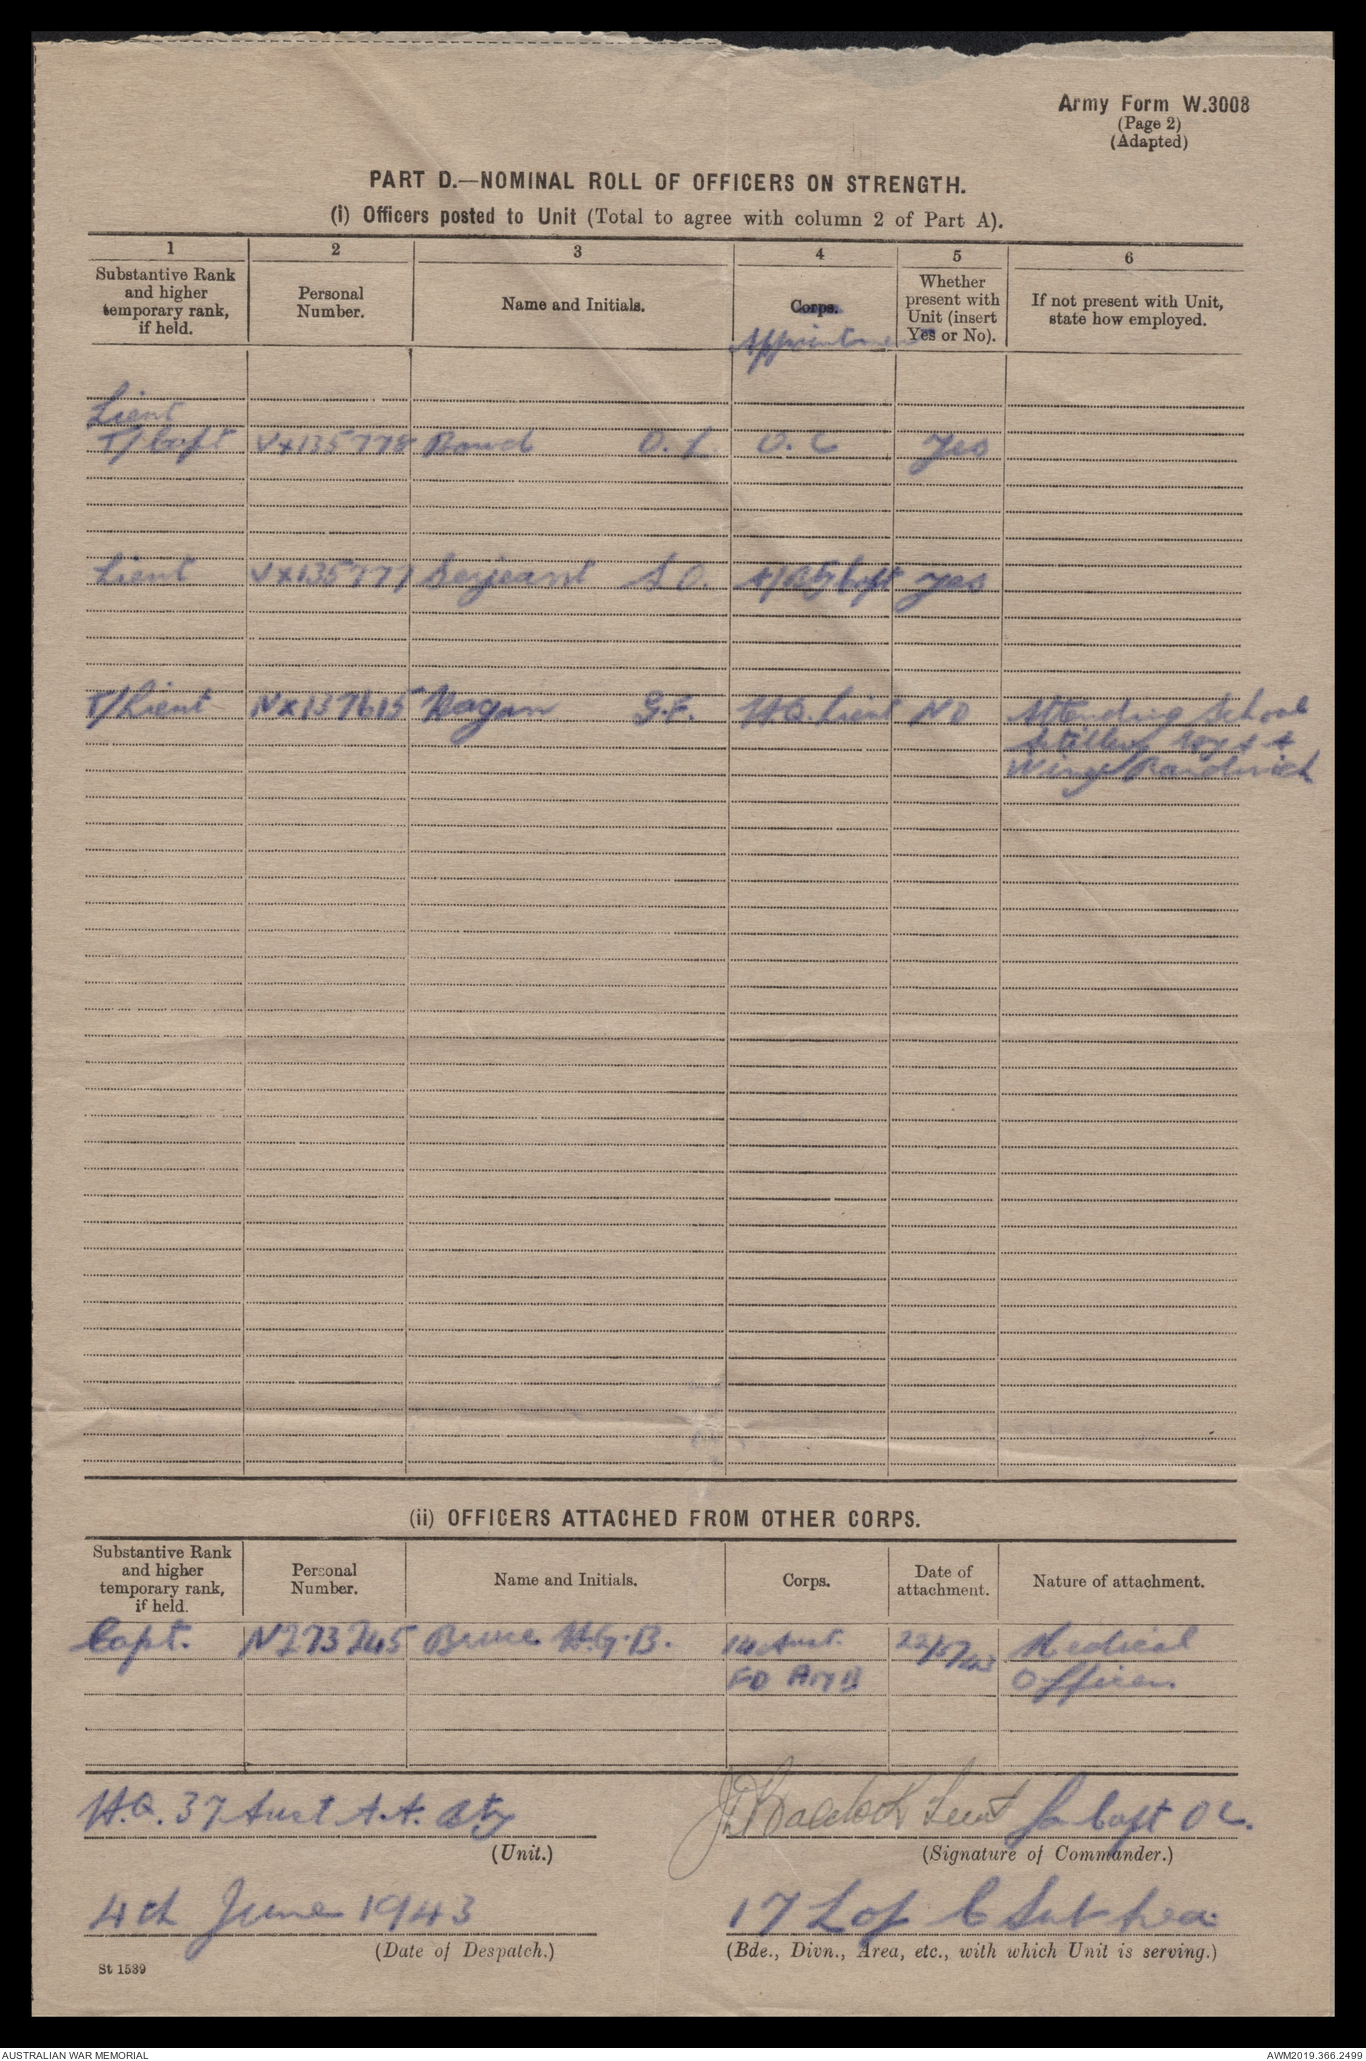 Army Form W.3008
(Page 2)
(Adapted)
PART D.—NOMINAL ROLL OF OFFICERS ON STRENGTH.
(i) Officers posted to Unit (Total to agree with column 2 of Part A).
1 2 3 4 5 6
Substantive Rank and higher temporary rank, if held. Personal Number. Name and Initials. Corps. Whether present with Unit (insert Yes or No). If not present with Unit, state how employed.
Appointment
Lieut
T/Capt VX135778 O. L. O. C Yes
Lieut VX135777 Serjeant S O. Capt Yes
T/Lieut NX137615 G.F. H.Q. Lieut NO Attending School
Artillery
Wing Randwick
(ii) OFFICERS ATTACHED FROM OTHER CORPS.
Substantive Rank and higher temporary rank, if held. Personal Number. Name and Initials. Corps. Date of attachment. Nature of attachment.
Capt. N273245 Bruce H.G.B. 14 Aust. 22/5/43 Medical
FD AMB Officer
H.Q. 37 Aust A.A. Bty Lieut for Capt OC.
(Unit.) (Signature of Commander.)
4th June 1943 17 L of C Sub Area
(Date of Despatch.) (Bde., Divn., Area, etc., with which Unit is serving.)
St 1539
AUSTRALIAN WAR MEMORIAL AWM2019.366.2499